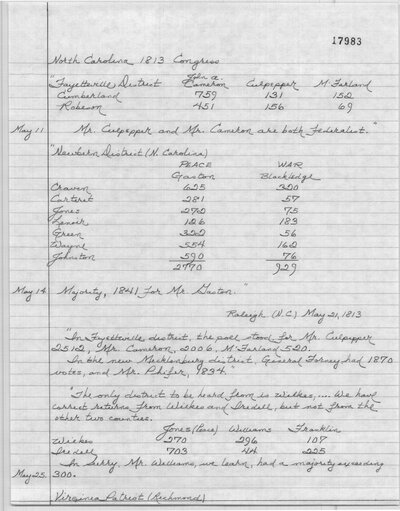 17983
North Carolina 1813 Congress
"Fayetteville District John A. Cameron Culpepper McFarland
Cumberland 759 131 152
Robeson 451 156 69
May 11. Mr. Culpepper and Mr. Cameron are both Federalist."
"Newbern District (N. Carolina)
PEACE WAR
Gaston Blackledge
Craven 625 320
Carteret 281 57
Jones 272 75
Lenoir 126 183
Green 322 56
Wayne 554 162
Johnston 590 76
2770 929
May 14. Majority, 1841 for Mr. Gaston."
Raleigh (N.C.) May 21, 1813
"In Fayetteville district, the poll stood for Mr. Culpepper
2512, Mr. Cameron, 2006, McFarland 520.
In the new Mecklenburg district, General Forney had 1870
votes, and Mr. Phifer, 9834."
"The only district to be heard from is Wilkes,.... We have
correct returns from Wilkes and Iredell, but not from the
other two counties.
Jones (Peace) Williams Franklin
Wilkes 270 296 107
Iredell 703 44 225
In Surry, Mr. Williams, we learn, had a majority exceeding
May 25. 300.
Virginia Patriot (Richmond)